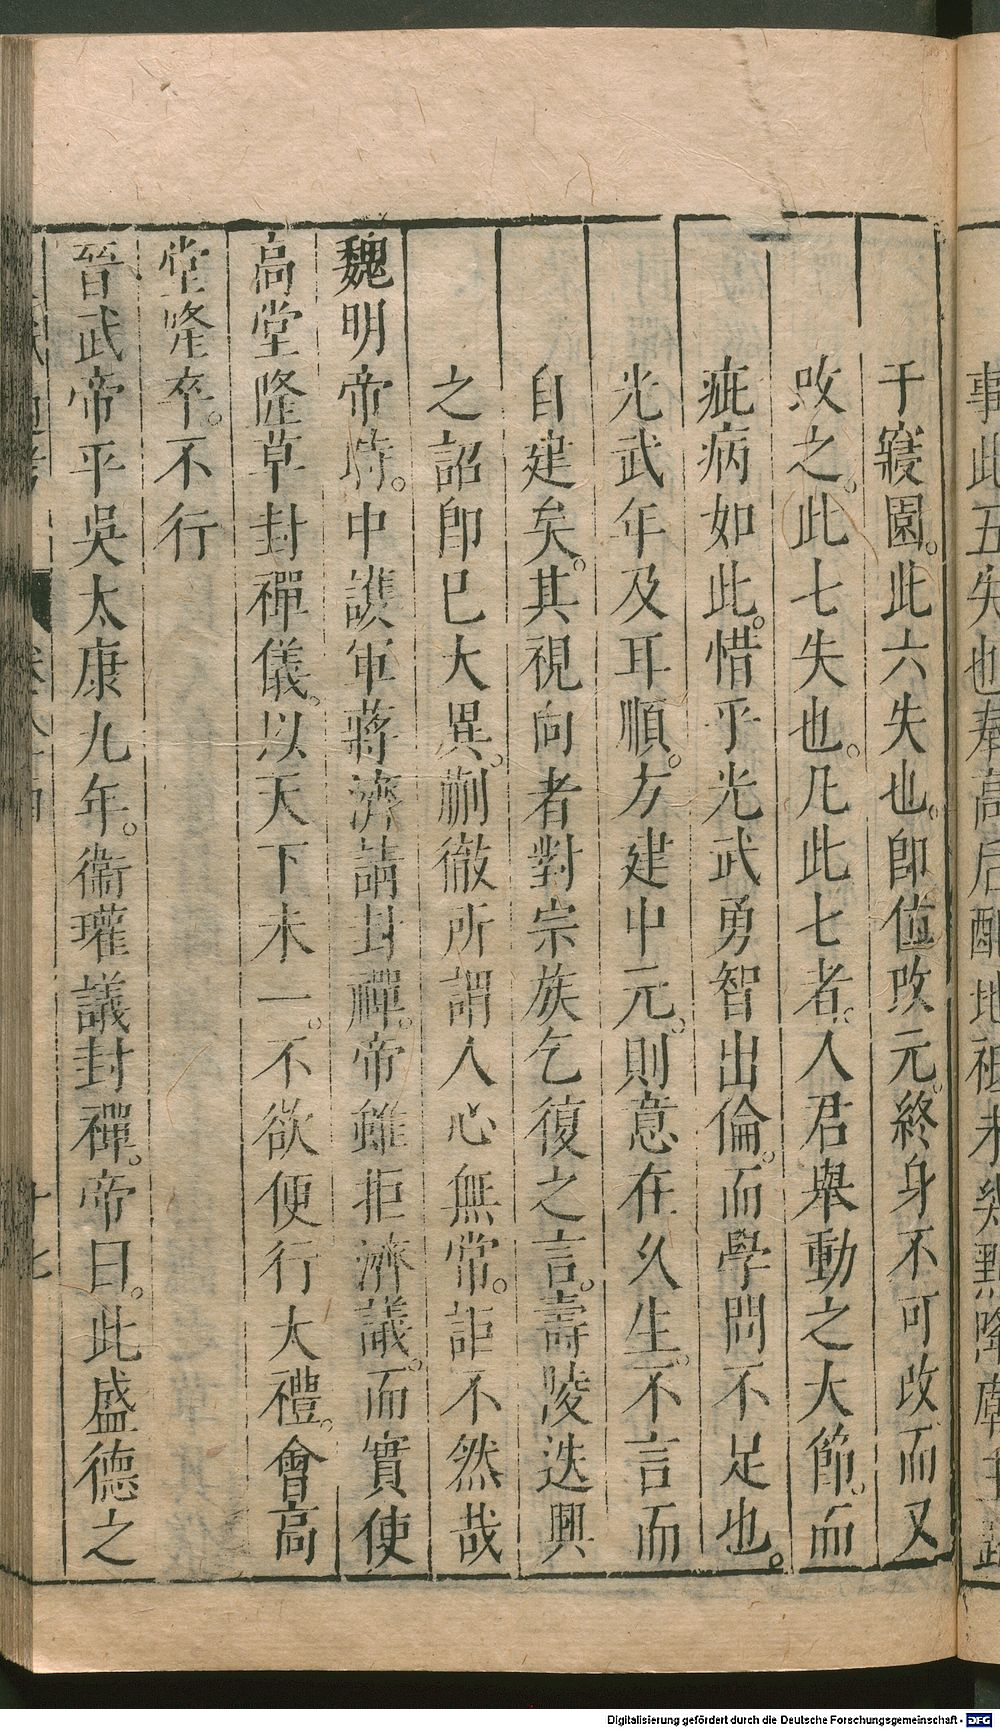 于寢園。此六失也。卽位改元。終身不可改而又
改之。此七失也。凡此七者。人君舉動之大節。而
疵病如此。惜乎光武勇智出倫。而學問不足也。
光武年及耳順。方建中元。則意在久生。不言而
自建矣。其視向者對宗族乞復之言。壽陵迭興
之詔卽已大異。蒯徹所謂人心無常。詎不然哉
魏明帝時。中護軍蔣濟請封禪。帝雖拒濟議。而實使
高堂隆草封禪儀。以天下未一。不欲便行大禮。會高
堂隆卒。不行
晉武帝平吳太康九年。衞瓘議封禪。帝曰。此盛德之
Digitalisierung gefördert durch die Deutsche Forschungsgemeinschaft - DFG